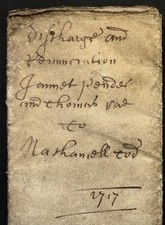 Discharge and
Renunciation
Jannet Pender
and Thomas Rae
to
Nathaniell Tod
1717